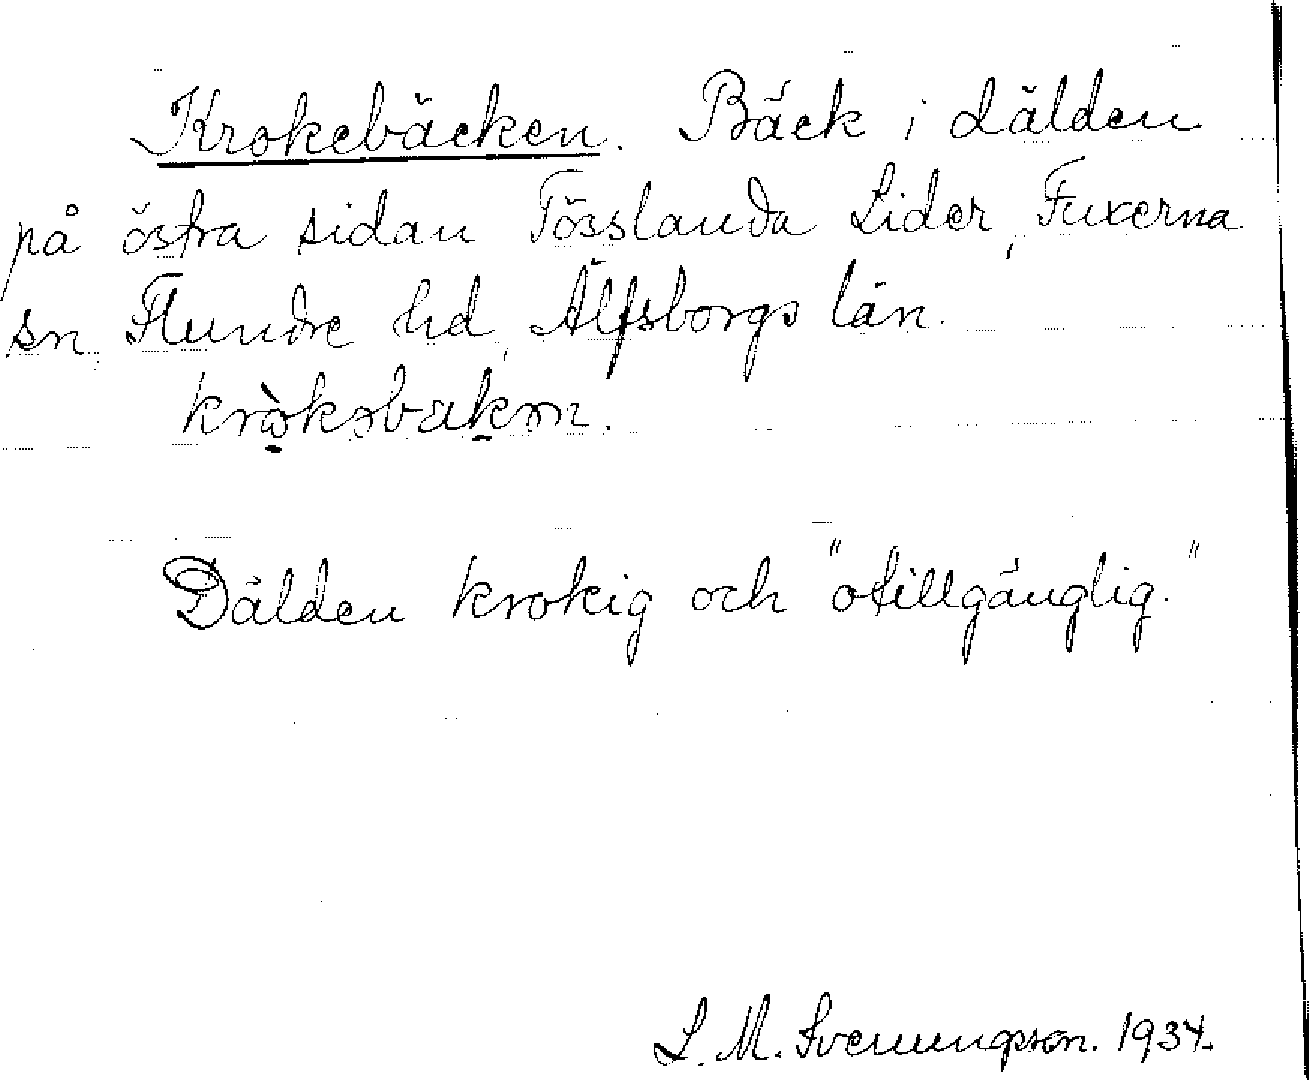 Krokebäcken. Bäck i dälden
på östra sidan Tösslanda Lider, Fuxerna
sn, Flundre hd, Älfsborgs län.
krò̱kəbäkən.
Dälden krokig och "otillgänglig."
L. M. Svenungsson. 1934.